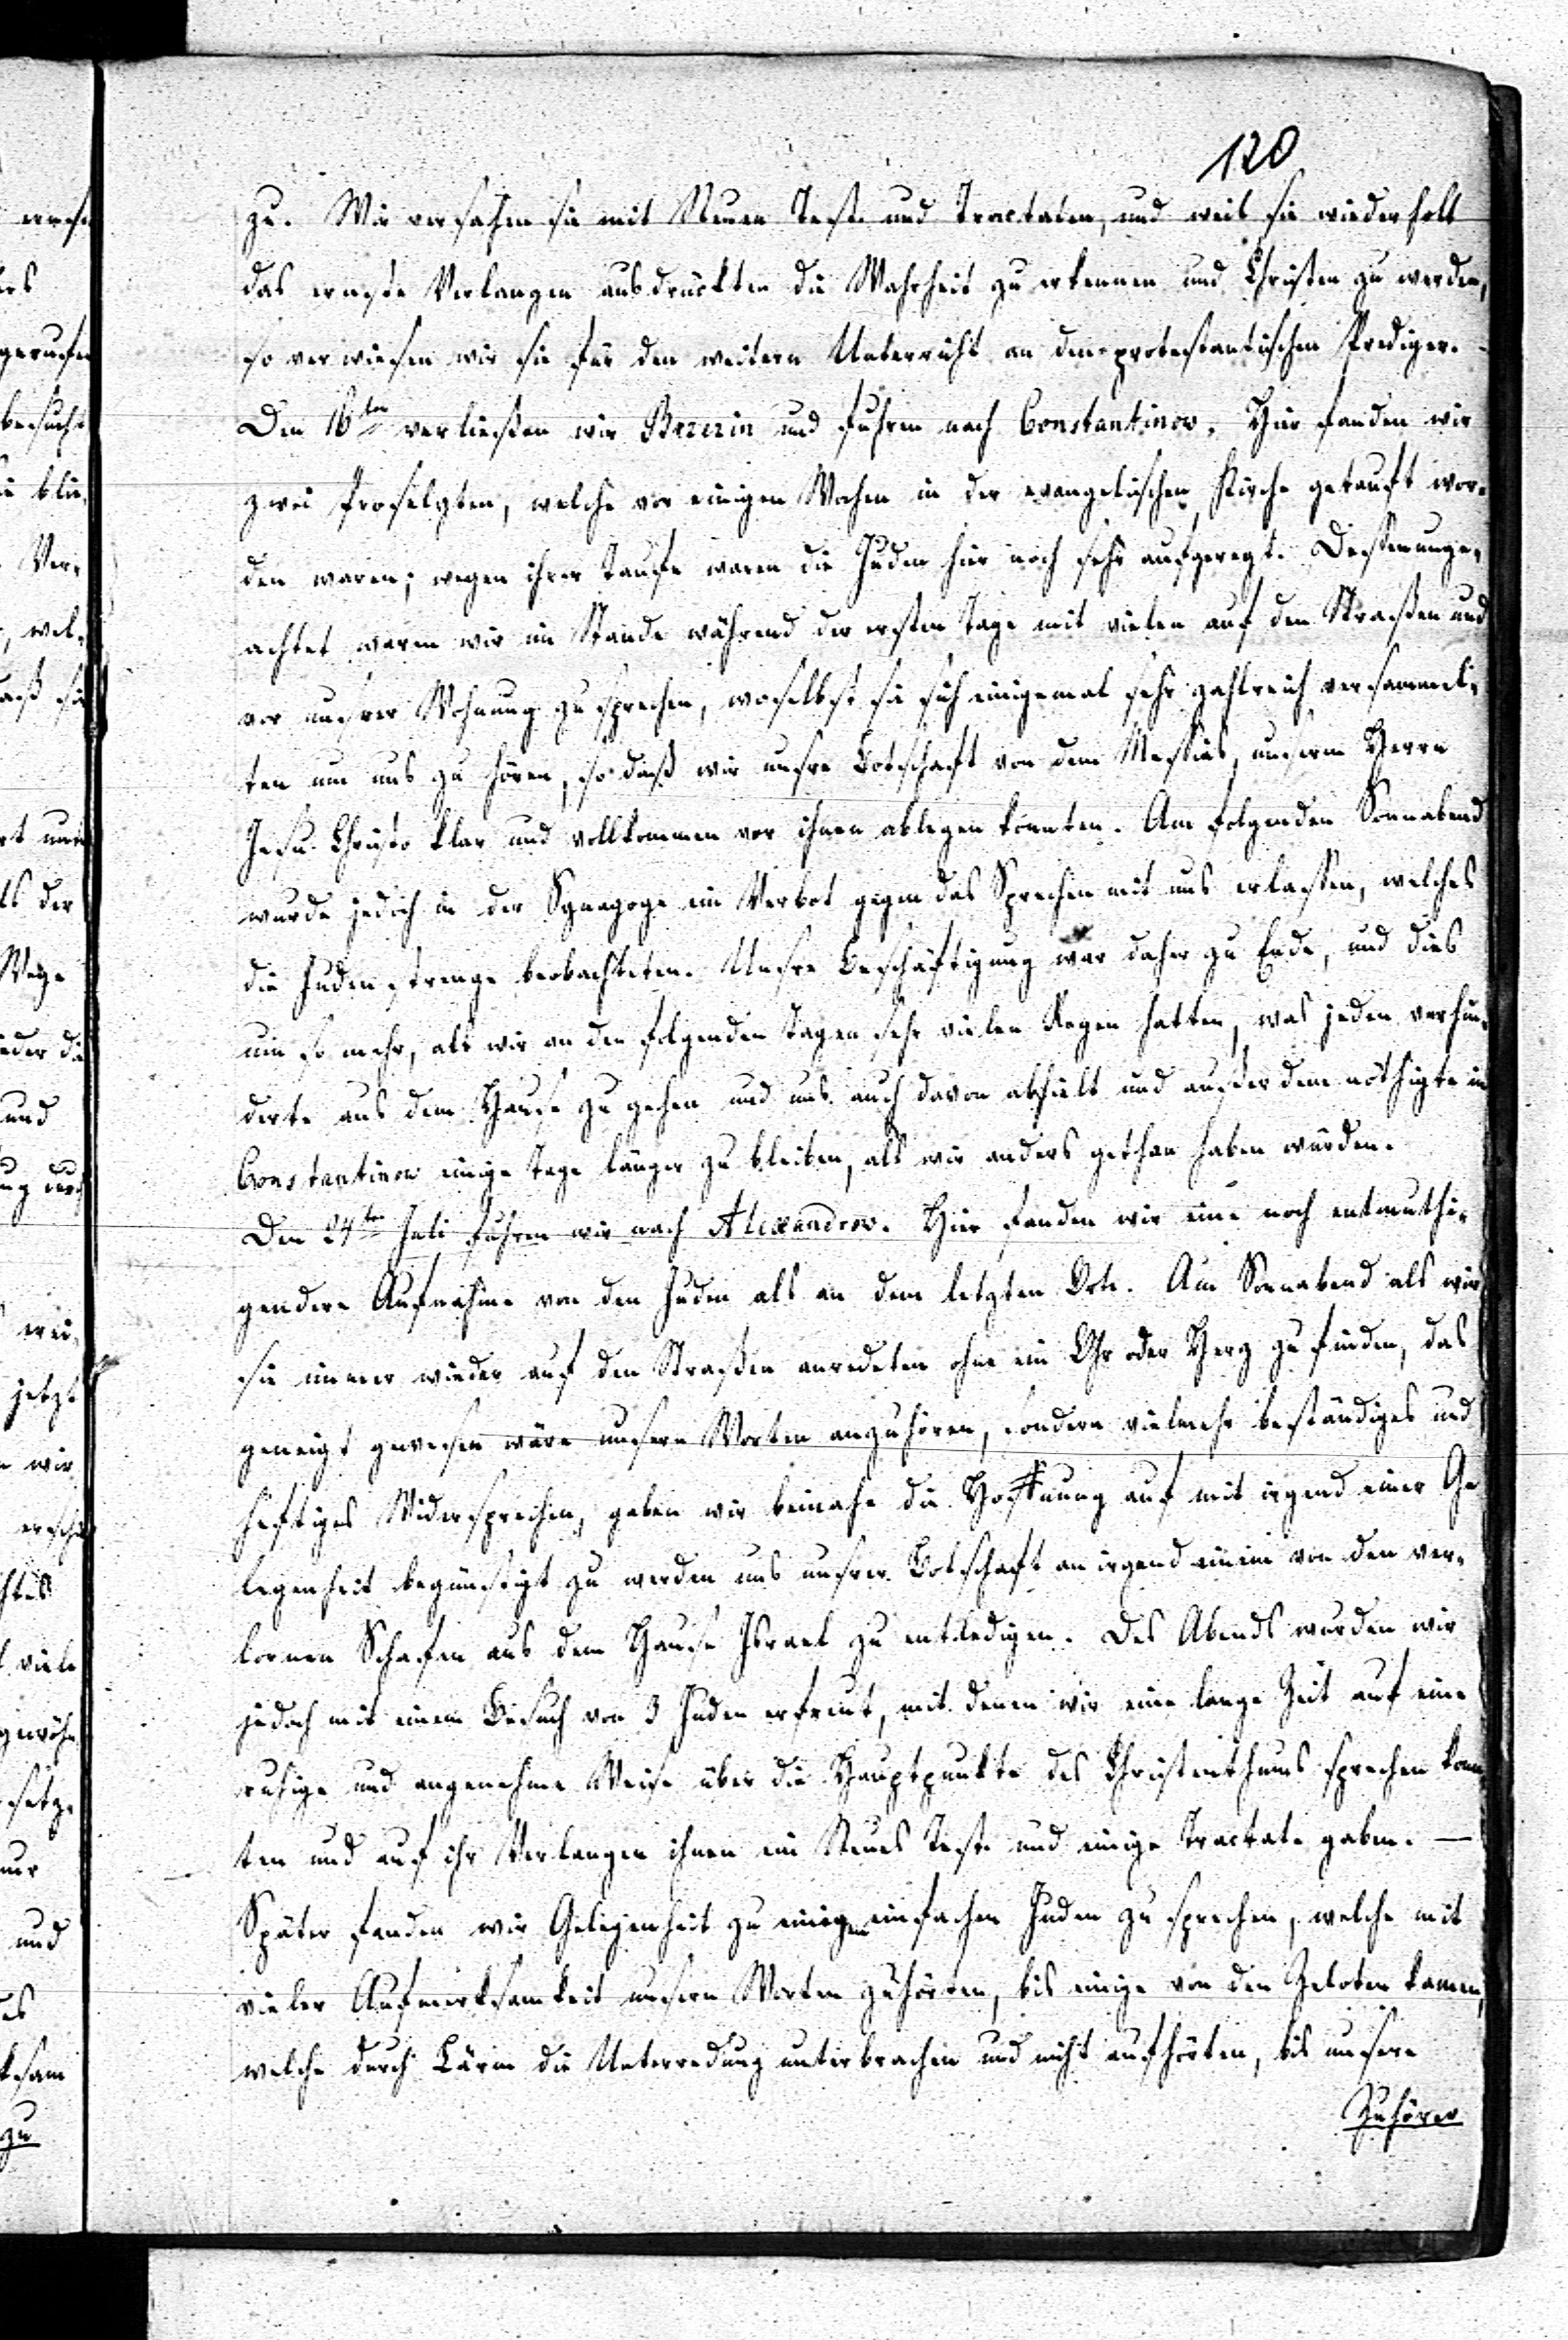 120
zu. Wir versahen sie mit Neuen Test. und Tractaten, und weil sie wiederholt
das ernste Verlangen ausdrückten die Wahrheit zu erkennen und Christen zu werden,
so verwiesen wir sie für den weitern Unterricht an den protestantischen Prediger. –
Den 16ten verließen wir Bzezin und fuhren nach Constantinow. Hier fanden wir
zwei Proselyten, welche vor einigen Wochen in der evangelischen Kirche getauft wor-
den waren; wegen ihrer Taufe waren die Juden hier noch sehr aufgeregt. Dessenunge-
achtet waren wir im Stande während der ersten Tage mit vielen auf den Straßen und
vor unsrer Wohnung zu sprechen, woselbst sie sich einigemal sehr zahlreich versammel-
ten um uns zu hören, so daß wir unsre Botschaft von dem Messias, unserm Herrn
Jesu Christo klar und vollkommen vor ihnen ablegen konnten. Am folgenden Sonnabend
wurde jedoch in der Synagoge ein Verbot gegen das Sprechen mit uns erlassen, welches
die Juden strenge beobachteten. Unsre Beschäftigung war daher zu Ende, und dies
um so mehr, als wir an den folgenden Tagen sehr vielen Regen hatten, was jeden verhin-
derte aus dem Hause zu gehen und uns auch davon abhielt und außerdem nöthigte in
Constantinow einige Tage länger zu bleiben, als wir anders gethan haben würden.
Den 24ten Juli fuhren wir nach Alexandrow. Hier fanden wir eine noch entmuthi-
gendere Aufnahme von den Juden als an dem letzten Orte. Am Sonnabend als wir
sie immer wieder auf den Straßen anredeten ohne ein Ohr oder Herz zu finden, das
geneigt gewesen wäre unsern Worten anzuhören, sondern vielmehr beständiges und
heftiges Widersprechen, gaben wir beinahe die Hoffnung auf mit irgend einer Ge
legenheit begünstigt zu werden uns unsrer Botschaft an irgend einem von den ver-
lornen Schafen aus dem Hause Israel zu entledigen. Des Abends wurden wir
jedoch mit einem Besuch von 3 Juden erfreut, mit denen wir eine lange Zeit auf eine
ruhige und angenehme Weise über die Hauptpunkte des Christenthums sprechen konn
ten und auf ihr Verlangen ihnen ein Neues Test. und einige Tractate gaben. —
Später fanden wir Gelegenheit zu einigen einfachen Juden zu sprechen, welche mit
vieler Aufmerksamkeit unsern Worten zuhörten, bis einige von den Zeloten kamen,
welche durch Lärm die Unterredung unterbrachen und nicht aufhörten, bis unsere
Zuhörer